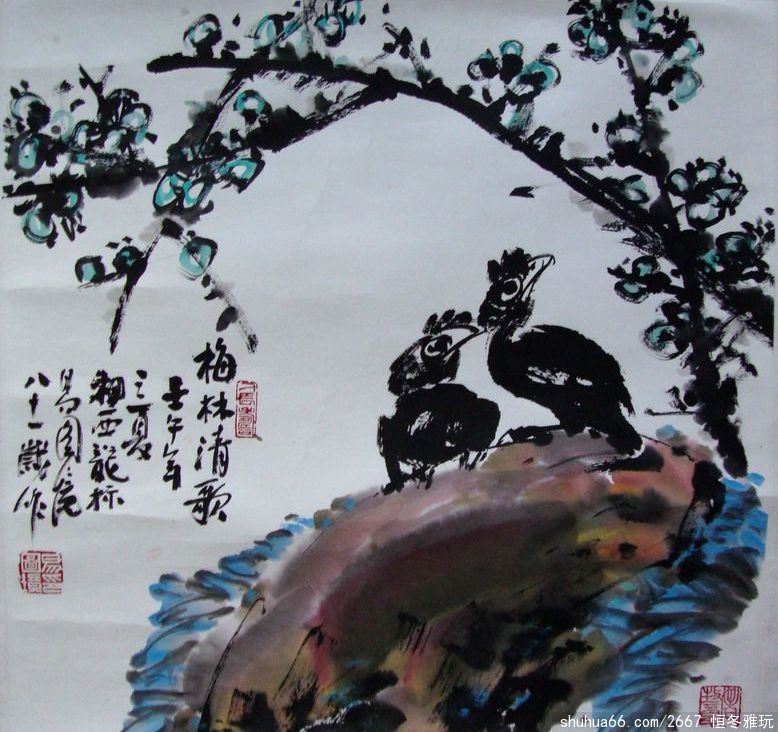 梅林清歌
壬午年
之夏
湘西龍标
易图境
八十一歲作
shuhua66.com/2667 恒冬雅玩